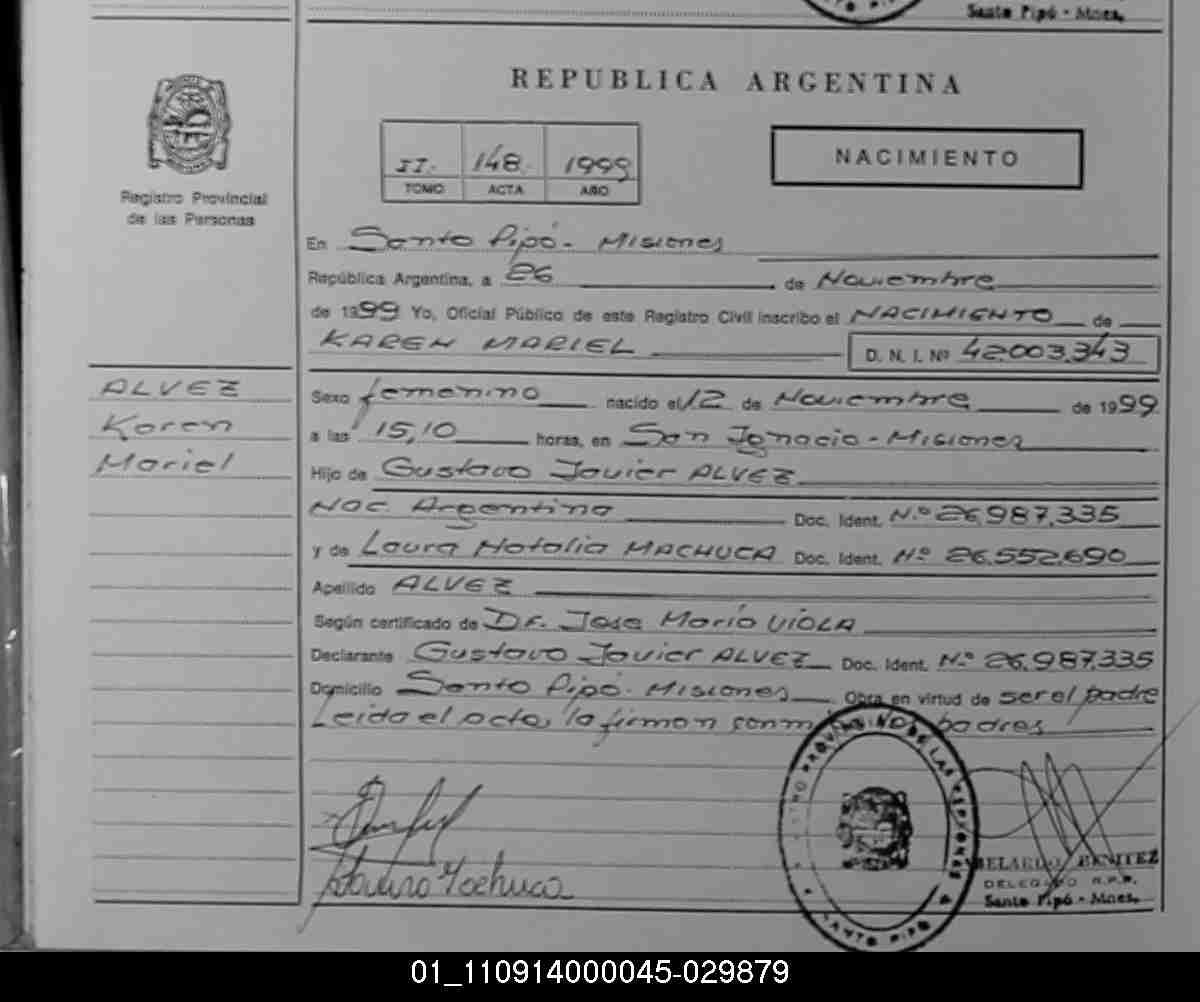 Santo Pipó - Mnes.
REPUBLICA ARGENTINA
II. 148. 1999
TOMO ACTA AÑO
NACIMIENTO
Registro Provincial
de las Personas
En Santo Pipó - Misiones
República Argentina, a 26 de Noviembre
de 1999 Yo, Oficial Público de este Registro Civil inscribo el NACIMIENTO de
KAREN MARIEL D. N. I. Nº 42.003.343
ALVEZ
Karen
Mariel
Sexo femenino nacido el 12 de Noviembre de 1999
a las 15,10 horas, en San Ignacio - Misiones
Hijo de Gustavo Javier ALVEZ
Nac Argentina Doc. Ident. N.º 26.987.335
y de Laura Natalia MACHUCA Doc. Ident. Nº 26.552.690
Apellido ALVEZ
Según certificado de Dr. Jose Mario VIOLA
Declarante Gustavo Javier ALVEZ Doc. Ident. N.º 26.987.335
Domicilio Santo Pipó - Misiones Obra en virtud de ser el padre
Leida el acta, la firman padres
Machuca
BELARDO BENITEZ
DELEGADO R.P.P.
Santo Pipó - Mnes.
DE LAS PERSONAS
SANTO PIPO
01_110914000045-029879